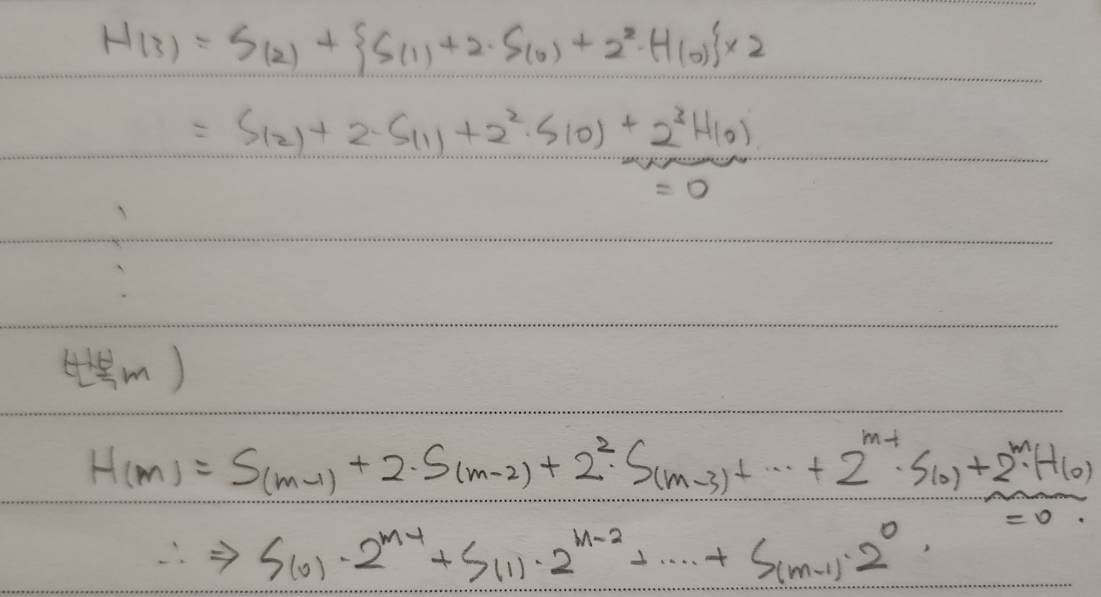 H(3) = S(2) + {S(1) + 2·S(0) + 2²·H(0)}×2
= S(2) + 2·S(1) + 2²·S(0) + 2³H(0).
= 0
반복m )
H(m) = S(m-1) + 2·S(m-2) + 2²·S(m-3) + ··· + 2^(m-1)·S(0) + 2^m·H(0)
= 0 .
∴ ⇒ S(0)·2^(m-1) + S(1)·2^(m-2) + ···· + S(m-1)·2^0 .